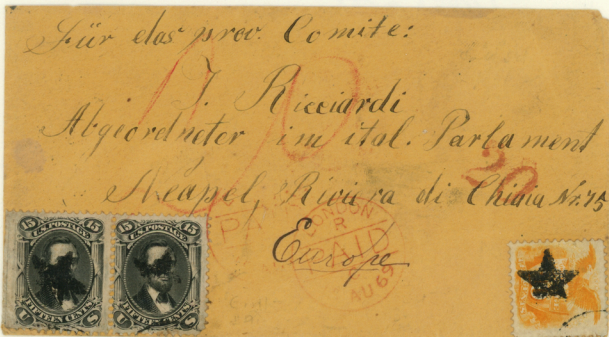 Für das prov. Comite:
J. Ricciardi
Abgeordneter im ital. Parlament
20
Neapel, Riviera di Chiaia Nr. 75
Europe
PAID
LONDON
R
PAID
AU 69
15 U.S. POSTAGE 15
FIFTEEN CENTS
U S
15 U.S. POSTAGE 15
FIFTEEN CENTS
U S